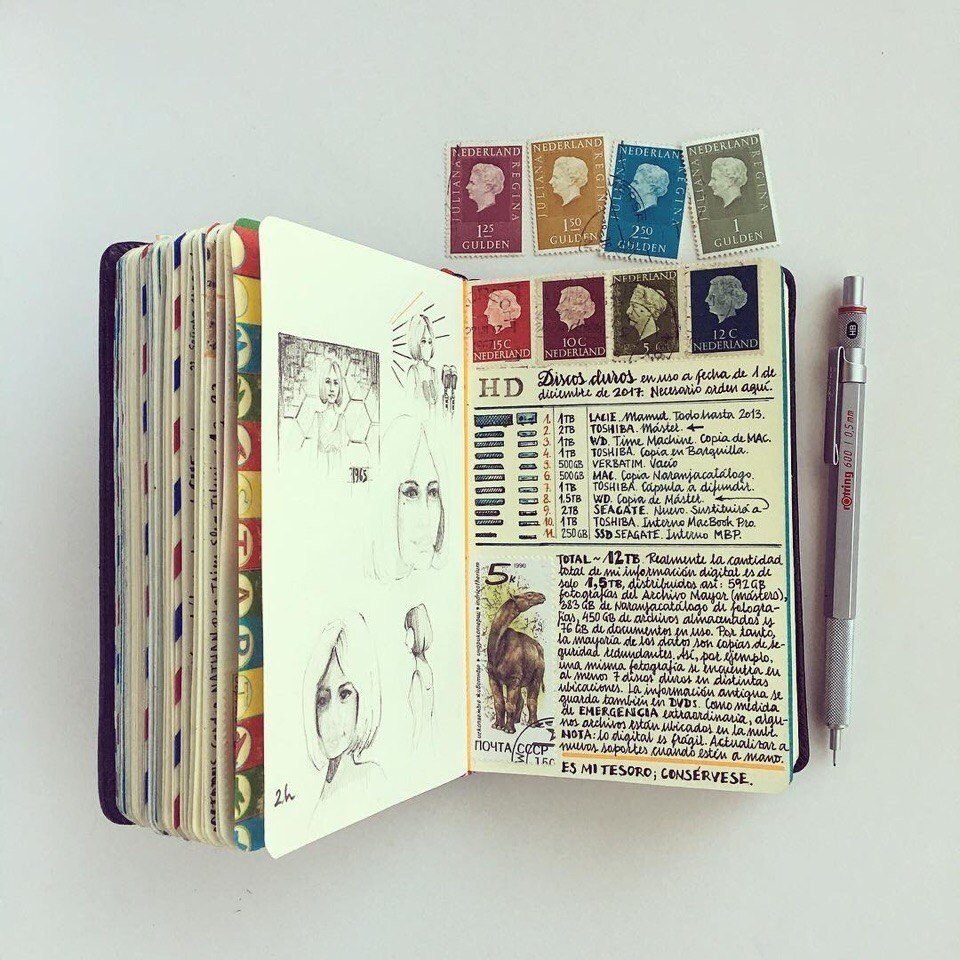 NEDERLAND
JULIANA REGINA
1 25
GULDEN
NEDERLAND
JULIANA REGINA
1 50
GULDEN
NEDERLAND
JULIANA REGINA
2 50
GULDEN
NEDERLAND
JULIANA REGINA
1
GULDEN
15 C
NEDERLAND
10 C
NEDERLAND
NEDERLAND
5 C
12 C
NEDERLAND
HD Discos duros en uso a fecha de 1 de
diciembre de 2017. Necesario orden aquí.
1. 1TB LACIE. Mamut. Todo hasta 2013.
2. 2TB TOSHIBA. Máster. ←
3. 1TB WD. Time Machine. Copia de MAC.
4. 1TB TOSHIBA. Copia en Barquilla.
5. 500GB VERBATIM. Vacío
6. 500GB MAC. Copia Naranjacatálogo.
7. 1TB TOSHIBA. Cápsula a difundir.
8. 1.5TB WD. Copia de Máster. ←
9. 2TB SEAGATE. Nuevo. Sustituirá a
10. 1TB TOSHIBA. Interno MacBook Pro.
11. 250GB SSD SEAGATE. Interno MBP.
TOTAL ~ 12TB. Realmente la cantidad
total de mi información digital es de
solo 1,5TB, distribuidos así: 592GB
fotografías del Archivo Mayor (másters),
383GB de Naranjacatálogo de fotogra-
fías, 450GB de archivos almacenados y
76GB de documentos en uso. Por tanto,
la mayoría de los datos son copias de se-
guridad redundantes. Así, por ejemplo,
una misma fotografía se encuentra en
al menos 7 discos duros en distintas
ubicaciones. La información antigua se
guarda también en DVDs. Como medida
de EMERGENCIA extraordinaria, algu-
nos archivos están ubicados en la nube.
NOTA: lo digital es frágil. Actualizar a
nuevos soportes cuando estén a mano.
ES MI TESORO; CONSÉRVESE.
5 K
1990
ПОЧТА СССР
1965
2h
HB
rOtring 600 | 0,5 mm